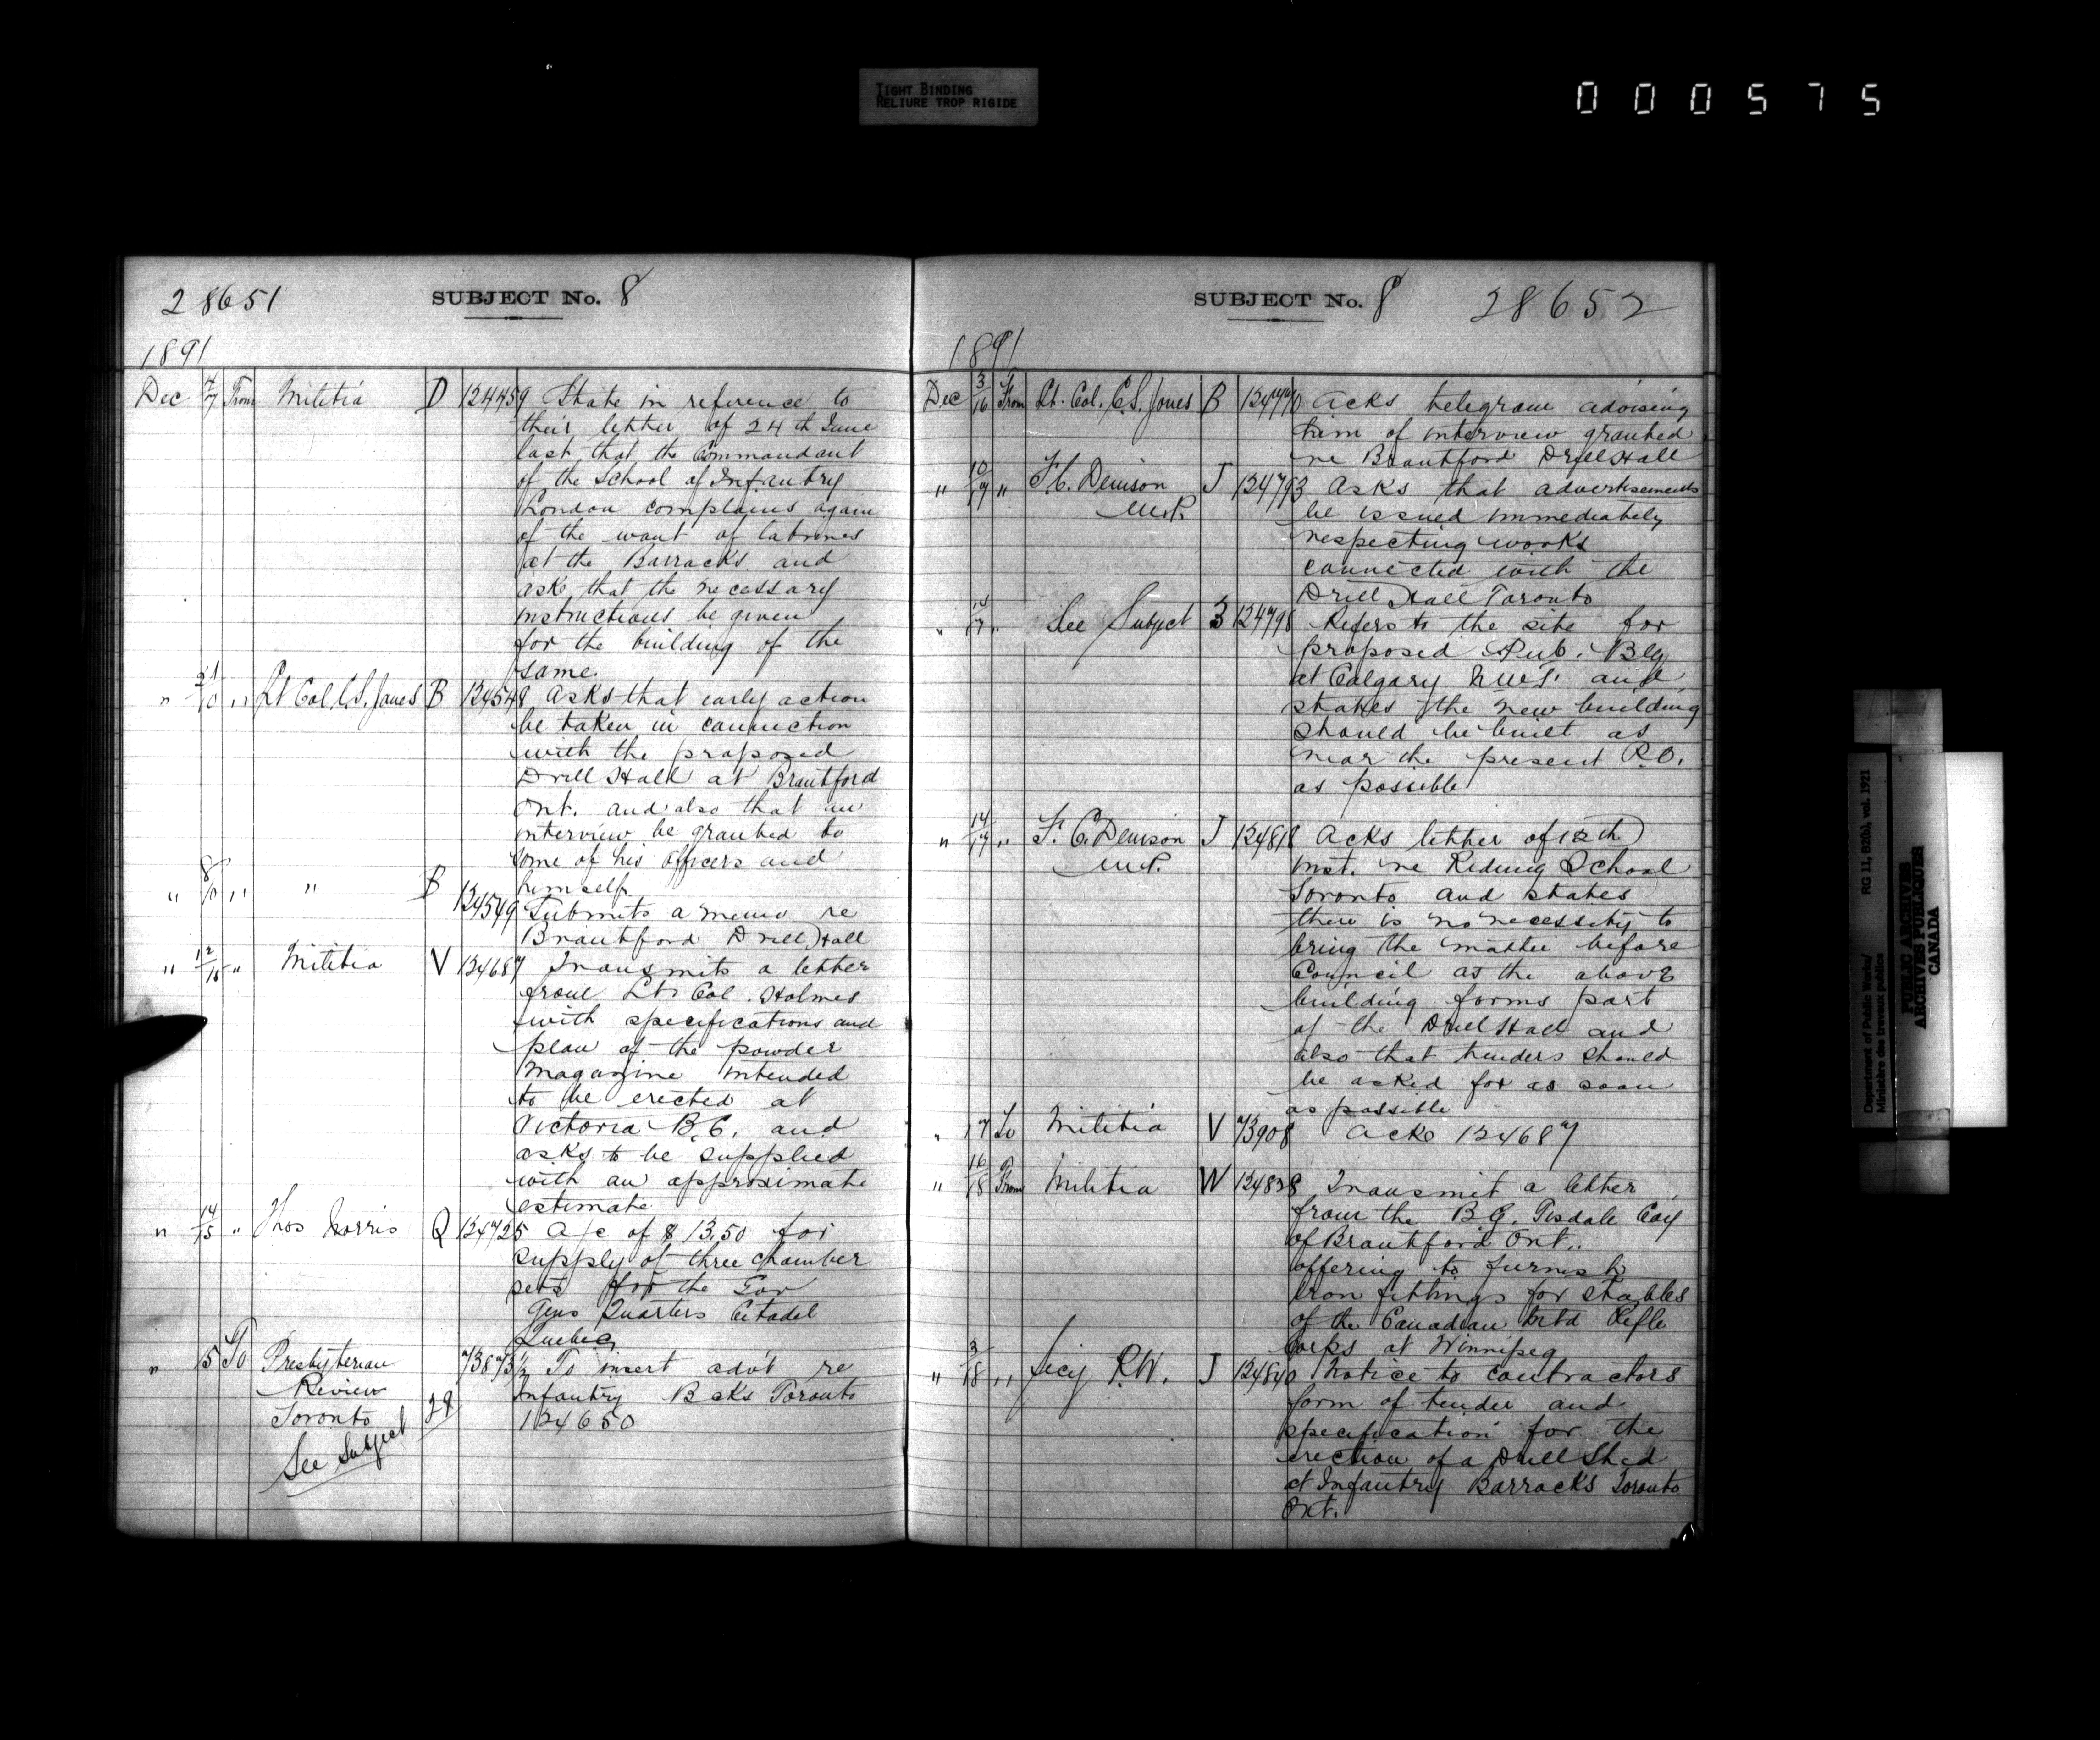 TIGHT BINDING
RELIURE TROP RIGIDE
000575
28651
SUBJECT No. 8
1891
Dec 4/7 From Militia D 124459 State in reference to
their letter of 24th June
last that the Commandant
of the School of Infantry
London complains again
of the want of latrines
at the Barracks and
ask that the necessary
instructions be given
for the building of the
same.
" /10 " Lt Col C.S. Jones B 124548 Asks that early action
be taken in connection
with the proposed
Drill Hall at Brantford
Ont. and also that an
interview be granted to
some of his officers and
himself.
" 8/10 " " B 124549 Submits a memo re
Brantford Drill Hall
" 12/15 " Militia V 124687 Transmits a letter
from Lt Col. Holmes
with specifications and
plan of the powder
Magazine intended
to be erected at
Victoria B.C. and
asks to be supplied
with an approximate
estimate
" 14/15 " Thos Norris Q 124725 A/c of $13.50 for
supply of three chamber
sets for the Gov
Gens Quarters Citadel
Quebec
" 15 To Presbyterian 73873½ To insert adv't re
Review Infantry Bcks Toronto
Toronto 29 124650
See Subject
SUBJECT No. 8
28652
1891
Dec 3/16 From Lt. Col. C.S. Jones B 124770 Acks telegram advising
him of interview granted
re Brantford Drill Hall
" 10/17 " F.C. Denison J 124793 Asks that advertisements
M.P. be issued immediately
respecting works
connected with the
Drill Hall Toronto
" /17 " See Subject 3 124798 Refers to the site for
proposed Pub. Blg
at Calgary N.W.T. and
states the new building
should be built as
near the present P.O.
as possible
" 14/17 " F. C. Denison J 124818 Acks letter of 12th
M.P. inst. re Riding School
Toronto and states
there is no necessity to
bring the matter before
Council as the above
building forms part
of the Drill Hall and
also that tenders should
be asked for as soon
as possible
" 17 To Militia V 73908 Acks 124687
" 16/18 From Militia W 124828 Transmit a letter
from the B.G. Tisdale Coy
of Brantford Ont.
offering to furnish
iron fittings for stables
of the Canadian Mtd Rifle
Corps at Winnipeg
" 3/18 " R.W. J 124840 Notice to contractors
form of tender and
specification for the
erection of a Drill Shed
at Infantry Barracks Toronto
Ont.
Department of Public Works/
Ministère des travaux publics
RG 11, B2(b), vol. 1921
PUBLIC ARCHIVES
ARCHIVES PUBLIQUES
CANADA